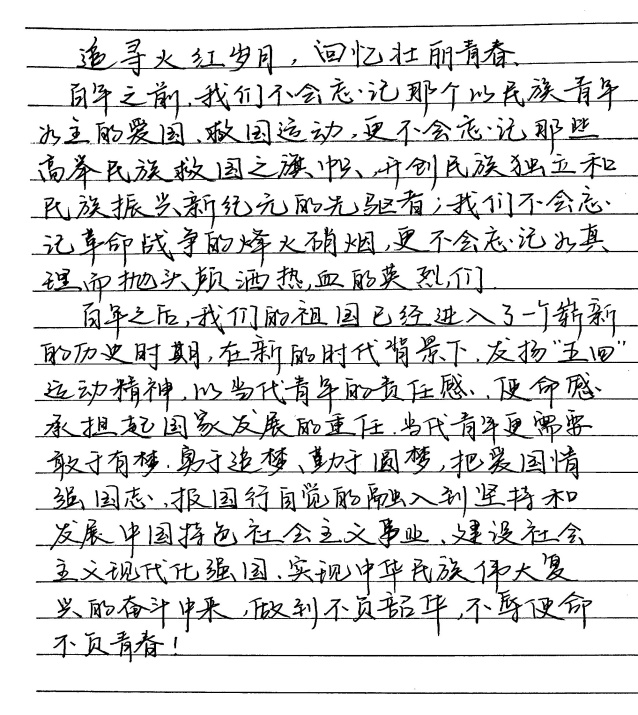 追寻火红岁月，回忆壮丽青春.
百年之前，我们不会忘记那个以民族青年
为主的爱国、救国运动，更不会忘记那些
高举民族救国之旗帜、开创民族独立和
民族振兴新纪元的先驱者；我们不会忘
记革命战争的烽火硝烟，更不会忘记为真
理而抛头颅洒热血的英烈们.
百年之后，我们的祖国已经进入了一个崭新
的历史时期，在新的时代背景下，发扬“五四”
运动精神，以当代青年的责任感、使命感
承担起国家发展的重任.当代青年更需要
敢于有梦、勇于追梦、勤于圆梦，把爱国情
强国志、报国行自觉的融入到坚持和
发展中国特色社会主义事业、建设社会
主义现代化强国、实现中华民族伟大复
兴的奋斗中来，做到不负韶华，不辱使命
不负青春！